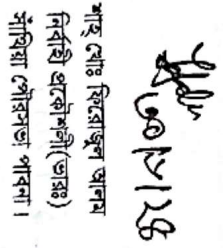 শাহ্ মোঃ ফিরোজুল আলম
নির্বাহী প্রকৌশলী (ভারঃ)
সাঁথিয়া পৌরসভা পাবনা।